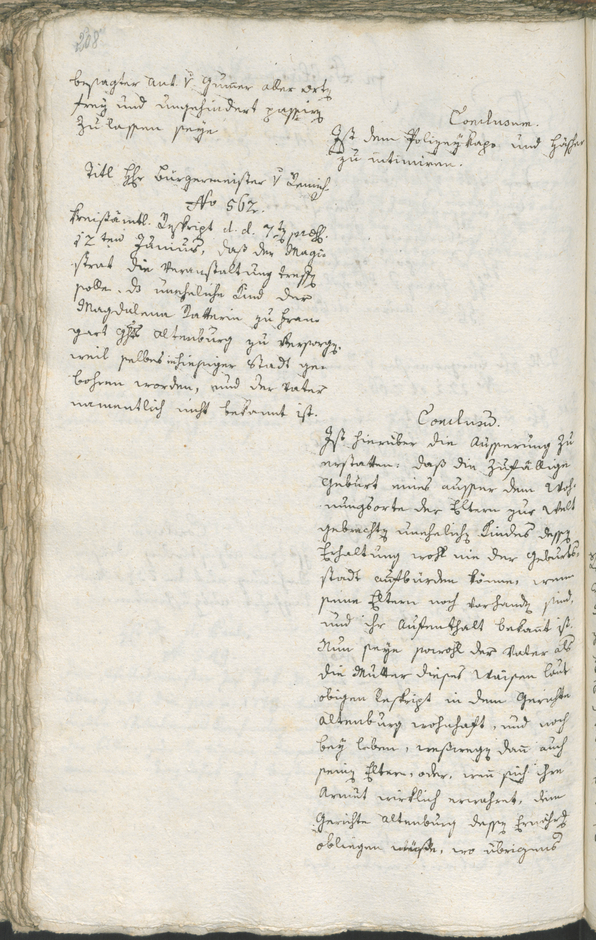 208
besagter Ant. v. Gumer aller Ort
frey und ungehindert passiren
zu lassen seye
Conclusum.
Ist dem Polizeykaps. und Häscher
zu intimiren.
Titl. Hr. Bürgermeister v.
No 562.
Kreisämtl. Reskript d. d. 7ten præs.
12ten Junius, daß der Magi-
strat die Veranstaltung treffen
solle, das uneheliche Kind der
Magdalena zu Fran-
gart Altenburg zu versorgen,
weil selbes in hiesiger Stadt ge-
bohren worden, und der Vater
namentlich nicht bekannt ist.
Conclusum.
Ist hierüber die Äusserung zu
erstatten: daß die zufällige
Geburt eines ausser dem Woh-
nungsorte der Eltern zur Welt
gebrachten unehelichen Kindes dessen
Erhaltung wohl nie der Geburts-
stadt aufbürden könne, wenn
seine Eltern noch vorhanden sind,
und ihr Aufenthalt bekannt ist.
Nun seye sowohl der Vater als
die Mutter dieses Waisen laut
obigen Reskript in dem Gerichte
Altenburg wohnhaft, und noch
bey leben, weßwegen dann auch
seinen Eltern, oder, wenn sich ihre
Armut wirklich erwahret, dem
Gerichte Altenburg dessen
obliegen müsse, wo übrigens